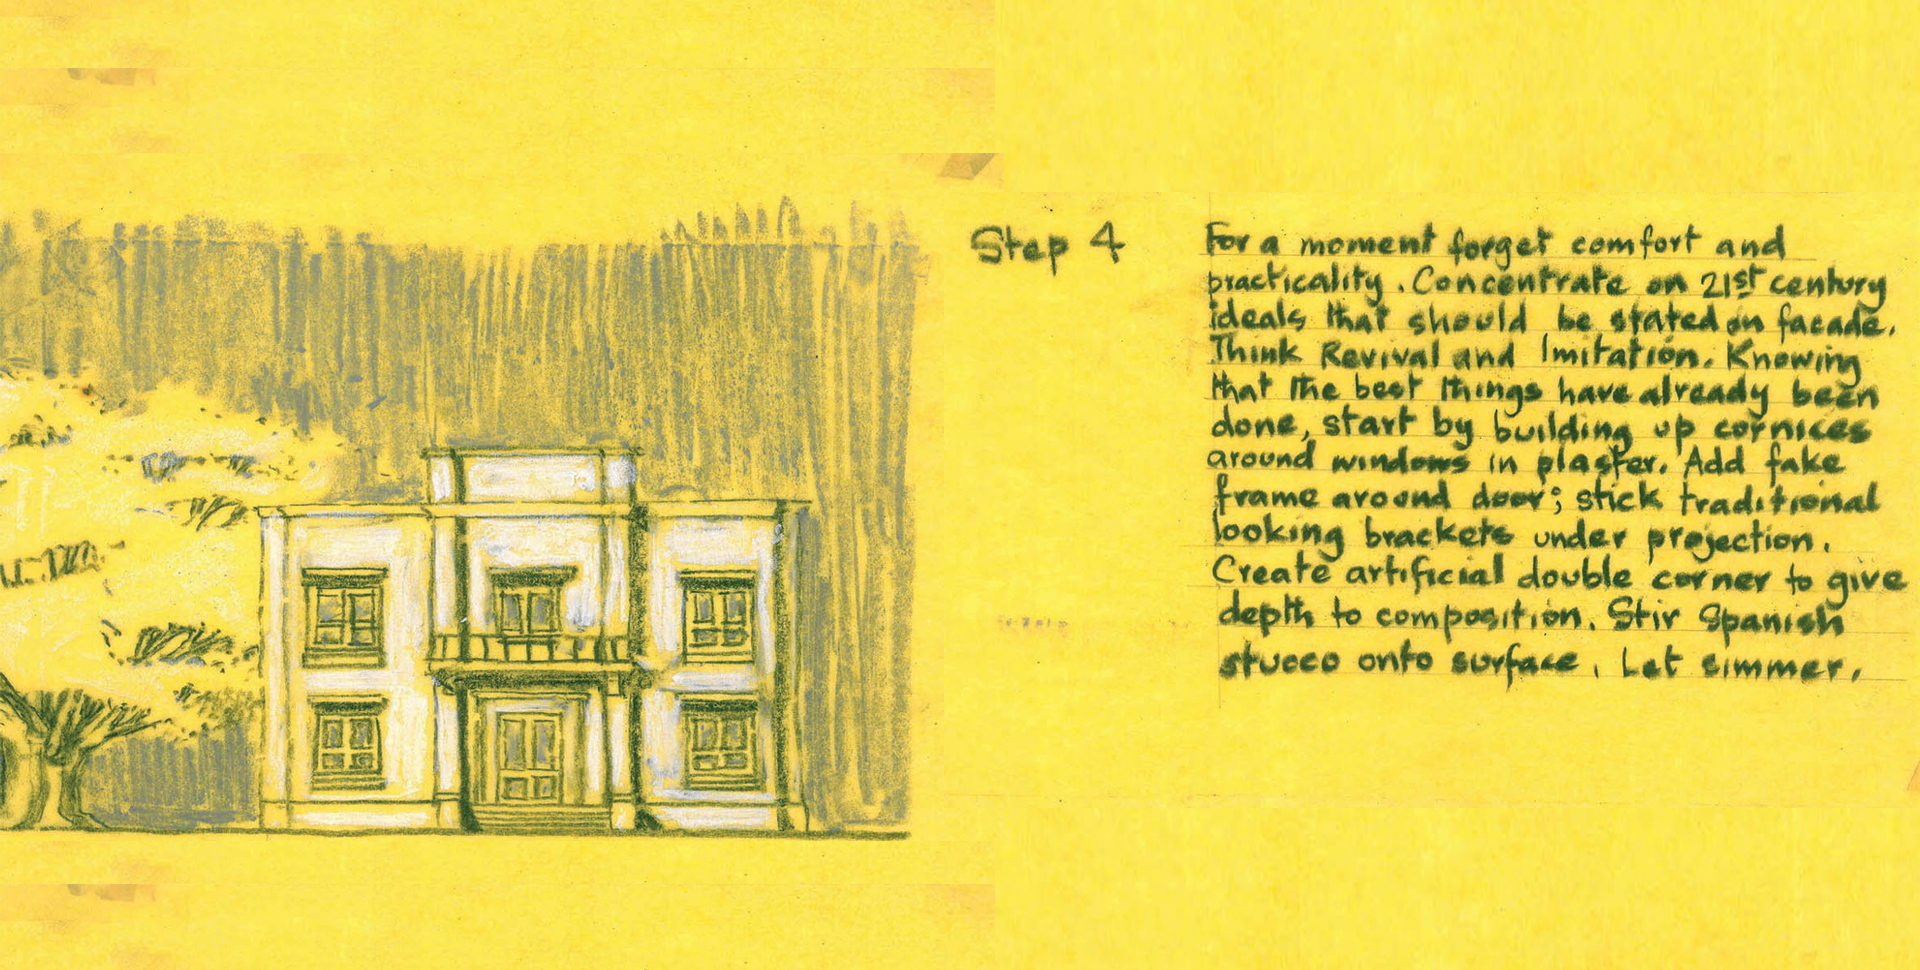 Step 4
For a moment forget comfort and
practicality. Concentrate on 21st century
ideals that should be stated on facade.
Think Revival and Imitation. Knowing
that the best things have already been
done, start by building up cornices
around windows in plaster. Add fake
frame around door; stick traditional
looking brackets under projection.
Create artificial double corner to give
depth to composition. Stir Spanish
stucco onto surface. Let simmer.